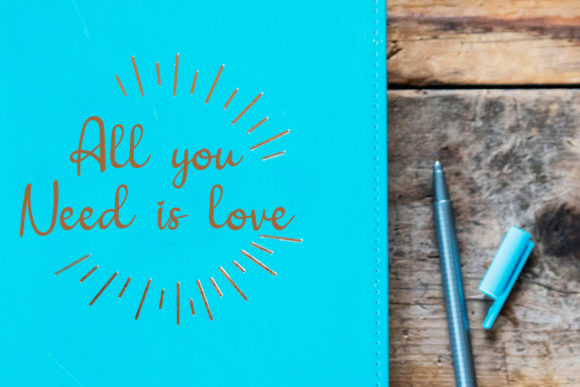 All you
Need is love